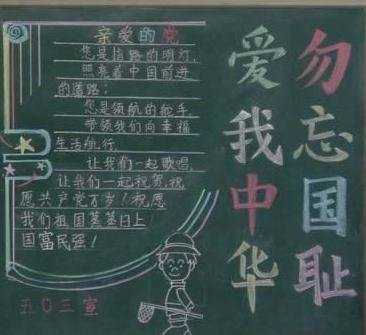 亲爱的党
您是指路的明灯,
照亮着中国前进
的道路;
您是领航的舵手,
带领我们向幸福
生活航行,
让我们一起歌唱,
让我们一起祝贺,祝
愿共产党万岁!祝愿
我们祖国蒸蒸日上
国富民强!
五〇三宣
勿忘国耻
爱我中华